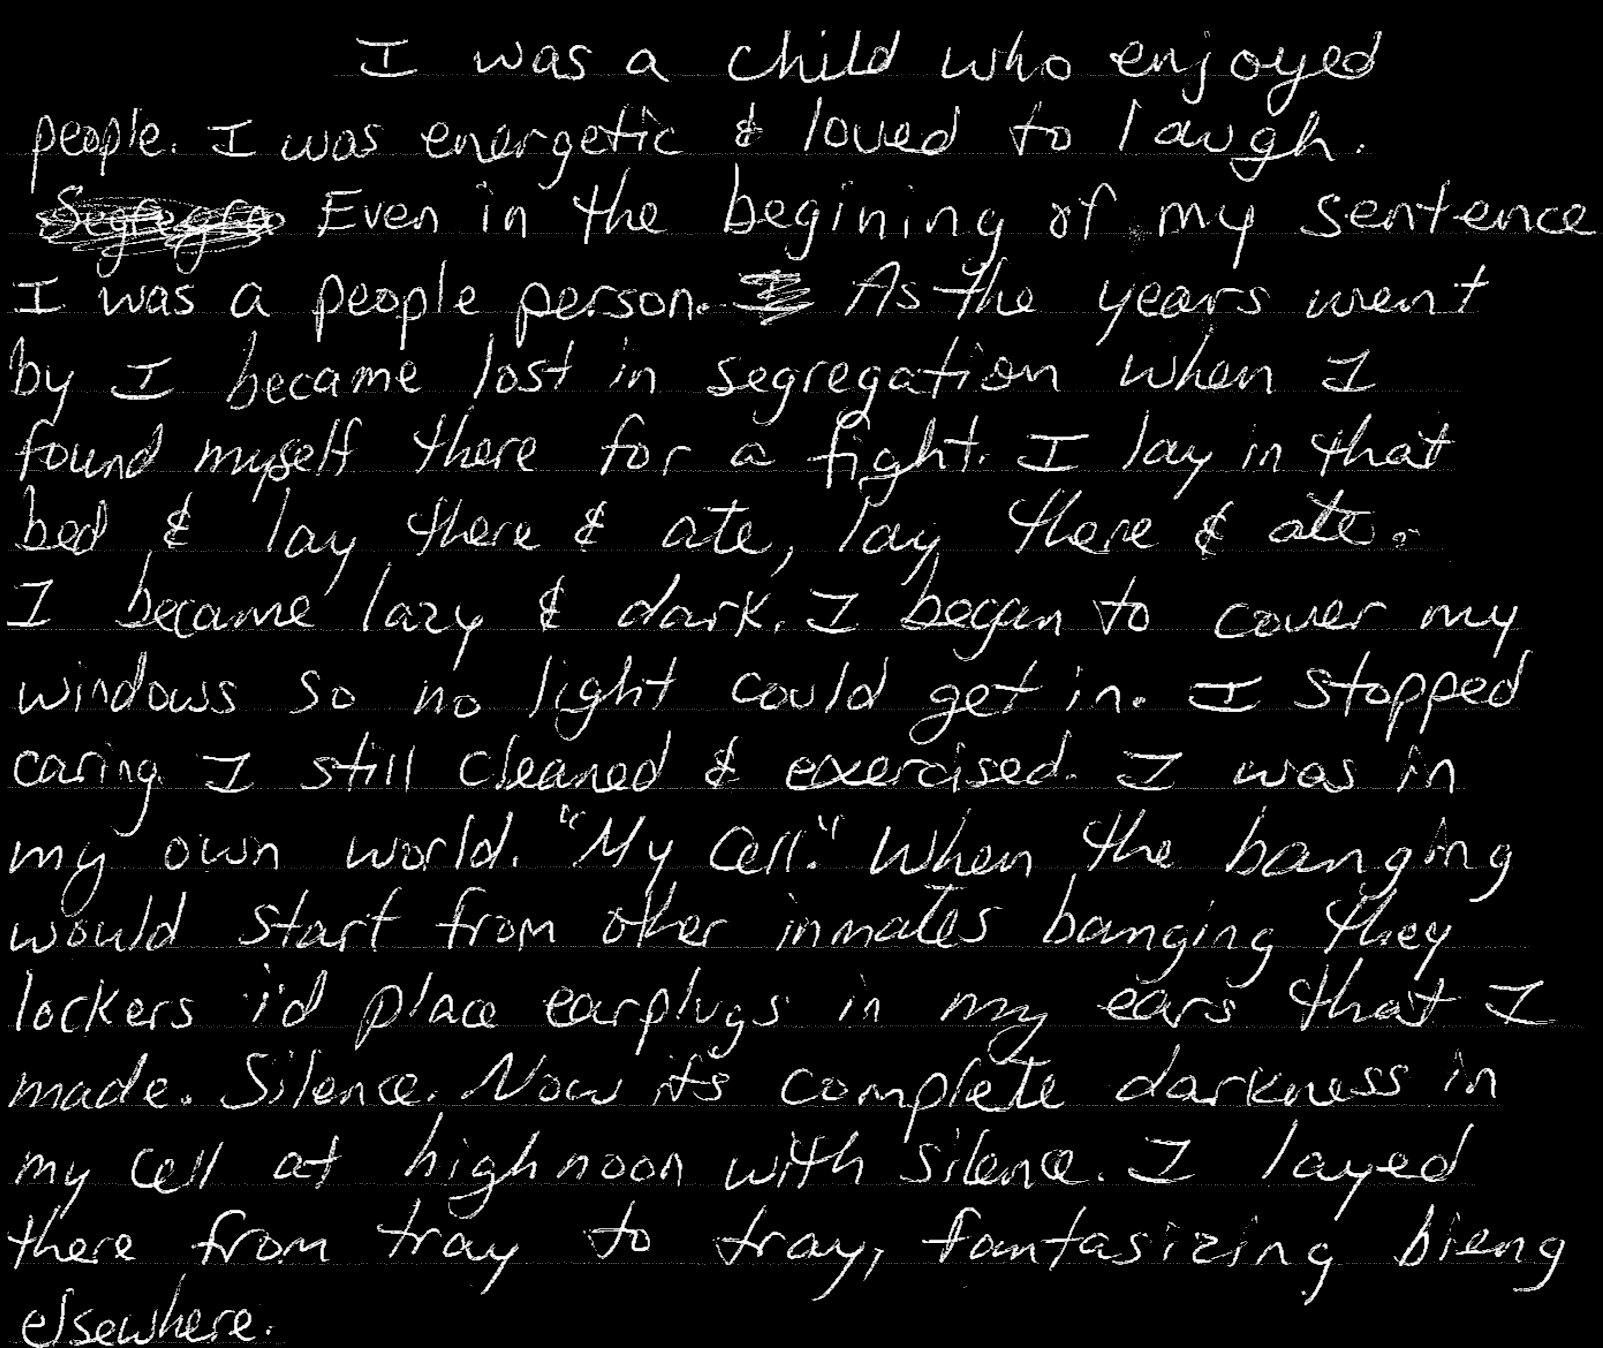 I was a child who enjoyed
people. I was energetic & loved to laugh.
Segregra Even in the begining of my sentence
I was a people person. I As the years went
by I became lost in segregation when I
found myself there for a fight. I lay in that
bed & lay there & ate, lay there & ate.
I became lazy & dark. I began to cover my
windows so no light could get in. I stopped
caring I still cleaned & exercised. I was in
my own world. "My Cell." When the banging
would start from other inmates banging they
lockers i'd place earplugs in my ears that I
made. Silence. Now its complete darkness in
my cell at high noon with silence. I layed
there from tray to tray, fantasizing bieng
elsewhere.